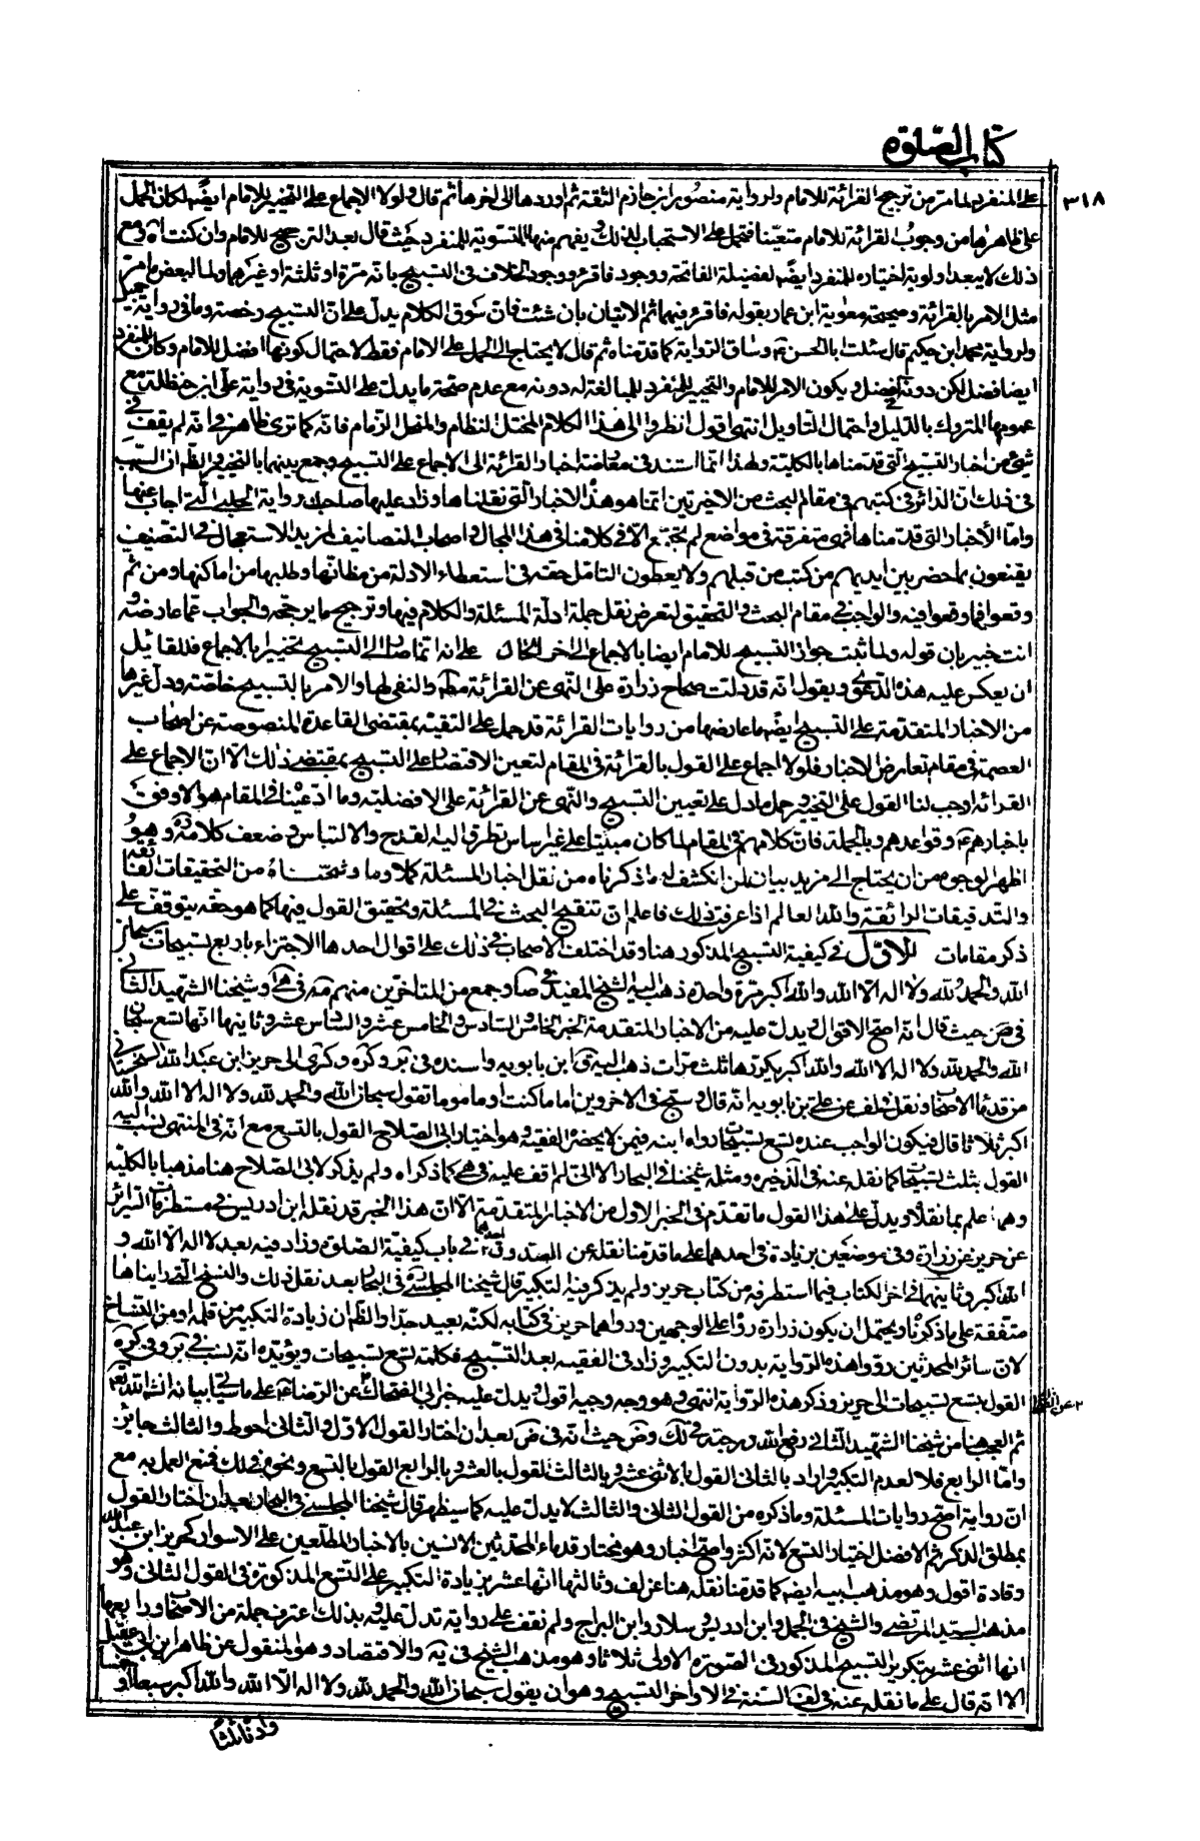 كتاب الصلوة
٣١٨
على المنفرد لما مر من ترجيح القرائة للامام ولرواية منصور بن حازم الثقة ثم اوردها الى اخرها ثم قال ولولا الاجماع على التخيير للامام ايضًا لكان الحمل
على ظاهرها من وجوب القرائة للامام متعيّنا فتحمل على الاستحباب لذلك ويفهم منها التسوية للمنفرد حيث قال بعد الترجيح للامام وان كنت اه ومع
ذلك لا يبعد اولوية اختياره للمنفرد ايضًا لفضيلة الفاتحة ووجود فاقرؤ ووجود الخلاف فى التسبيح بانه مرة او ثلثة او غيرها ولما لبعض ما مر
مثل الامر بالقرائة وصحيحة معوية ابن عمار بقوله فاقرء فيهما ثم الاتيان بان شئت فان سوق الكلام يدل على ان التسبيح رخصة وما فى رواية جميل
ولرواية محمد ابن حكيم قال سئلت ابا الحسن ع وساق الرواية كما قدمناه ثم قال لا يحتاج الى الحمل على الامام فقط لاحتمال كونها افضل للامام وكان للمنفرد
ايضا افضل لكن دونه فى الفضل ويكون الامر للامام والتخيير للمنفرد للمبالغة له دونه مع عدم صحة ما يدل على التسوية فى رواية على ابن حنظلة مع
عمومها المتروك بالدليل واحتمال التأويل انتهى اقول انظر الى هذا الكلام المختل النظام والمنحل الزمام فانه كما ترى ظاهر فى انه لم يقف فى
شئ من اخبار التسبيح التى قدمناها بالكلية ولهذا انما استند فى معارضة اخبار القرائة الى الاجماع على التسبيح وجمع بينهما بالتخيير والظ ان السبب
فى ذلك ان الدائر فى كتبهم فى مقام البحث من الاخيرتين انما هو هذه الاخبار التى نقلناها وزاد عليها صاحب رواية الحلبى التى اجاب عنها
واما الأخبار التى قدمناها فهى متفرقة فى مواضع لم تجتمع الا فى كلامنا فى هذا المجال واصحاب التصانيف لمزيد الاستعجال فى التصنيف
يقنعون بما حضر بين ايديهم من كتب من قبلهم ولا يعطون التامل حقه فى استعطاء الادلة من مظانها وطلبها من اماكنها ومن ثم
وقعوا فيما وقعوا فيه والواجب فى مقام البحث والتحقيق التعرض لنقل جملة ادلة المسئلة والكلام فيها وترجيح ما يرجحه والجواب عما عارضه و
انت خبير بان قوله ولما ثبت جواز التسبيح للامام ايضا بالاجماع الى اخر الحال على انه انما صار الى التسبيح تخييرا بالاجماع فللقائل
ان يعكر عليه هذه الدعوى ويقول انه قد دلت صحاح زرارة على النهى عن القرائة مطلقا والنفى لها والامر بالتسبيح خاصة ودل غيرها
من الاخبار المتقدمة على التسبيح ايضًا ما عارضها من روايات القرائة قد حمل على التقية بمقتضى القاعدة المنصوصة عن اصحاب
العصمة فى مقام تعارض الاخبار فلولا الاجماع على القول بالقرائة فى المقام لتعين الاقتصار على التسبيح بمقتضى ذلك الا ان الاجماع على
القرائة اوجب لنا القول على التخيير وحمل ما دل على تعيين التسبيح والنهى عن القرائة على الافضلية وما ادعيناه فى المقام هو الاوفق
باخبارهم ع وقواعدهم وبالجملة فان كلامهم فى المقام لما كان مبنيا على غير اساس تطرق اليه القدح والالتباس وضعف كلامه قده وهو
اظهر الوجوه من ان يحتاج الى مزيد بيان لمن انكشف له ما ذكرناه من نقل اخبار المسئلة كملا وما وشحناه من التحقيقات الفائقة
والتدقيقات الرائقة والله العالم اذا عرفت ذلك فاعلم ان تنقيح البحث فى المسئلة وتحقيق القول فيها كما هو حقه يتوقف على
ذكر مقامات الاول فى كيفية التسبيح المذكور هنا وقد اختلف الاصحاب فى ذلك على اقوال احدها الاجتزاء باربع تسبيحات سبحان
الله والحمد لله ولا اله الا الله والله اكبر مرة واحدة ذهب اليه الشيخ المفيد وجمع من المتاخرين منهم وشيخنا الشهيد الثانى
فى ض حيث قال انه اصح الاقوال ويدل عليه من الاخبار المتقدمة الخبر الخامس والسادس والخامس عشر والسادس عشر وثانيها انها تسع سبحان
الله والحمد لله ولا اله الا الله والله اكبر يكررها ثلث مرات ذهب اليه ق ابن بابويه واسنده فى بر وكره وكرى الى حريز ابن عبد الله السجستانى
من قدماء الاصحاب ونقل فى لف عن على بن بابويه انه قال وسبح فى الاخروين اماما كنت او ماموما تقول سبحان الله والحمد لله ولا اله الا الله والله
اكبر ثلاثا قال فيكون الواجب عنده تسع تسبيحات رواه ابنه فيمن لا يحضر الفقيه وهو اختيار ابى الصلاح القول بالتسع مع انه فى المنتهى نسب اليه
القول بثلث تسبيحات كما نقله عنه فى الذخيره ومثله شيخنا فى البحار الا انى لم اقف عليه فى هى كما ذكراه ولم يذكر لابى الصلاح هنا مذهبا بالكلية
وهما اعلم بما نقلاه ويدل على هذا القول ما تقدم فى الخبر الاول من الاخبار المتقدمة الا ان هذا الخبر قد نقله ابن ادريس فى مستطرفات السرائر
عن حريز عن زرارة وفى موضعين بزيادة فى احدهما على ما قدمنا نقله عن الصدوق احدهما فى باب كيفية الصلوة وزاد فيه بعد لا اله الا الله و
الله اكبر وثانيهما فى اخر الكتاب فيما استطرفه من كتاب حريز ولم يذكر فيه التكبير قال شيخنا المجلسى فى البحار بعد نقل ذلك والنسخ التى رايناها
متفقة على ما ذكرناه ويحتمل ان يكون زرارة رواه على الوجهين ورواهما حريز فى كتابه لكنه بعيد جدا والظ ان زيادة التكبير من قلمه او من النساخ
لان سائر المحدثين رووا هذه الرواية بدون التكبير وزاد فى الفقيه بعد التسبيح فكلمة تسع تسبيحات ويؤيده انه نسب فى بر وفى كره
القول بتسع تسبيحات الى حريز وذكر هذه الرواية انتهى وهو وجه وجيه اقول ويدل عليه خبر ابن الضحاك عن الرضا ع على ما سياتى بيانه انشاء الله تعالى
ثم العجب هنا من شيخنا الشهيد الثانى رفع الله درجته فى لك وض حيث انه فى ض بعد ان اختار القول الاول والثانى احوط والثالث جائز
واما الرابع فلا لعدم التكبير واراد بالثانى القول بالاثنى عشر وبالثالث القول بالعشر وبالرابع القول بالتسع ونحوه فى لك فمنع العمل به مع
ان روايته اصح روايات المسئلة وما ذكره من القول الثانى والثالث لا يدل عليه كما سيظهر قال شيخنا المجلسى فى البحار بعد ان اختار القول
بمطلق الذكر ثم الافضل اختيار التسع لانه اكثر واصح اخبارا وهو مختار قدماء المحدثين الانسين بالاخبار المطلعين على الاسرار كحريز ابن عبد الله
وقادة اقول وهو مذهب ابيه ايضًا كما قدمنا نقله هنا عن لف وثالثها انها عشر بزيادة التكبير على التسع المذكورة فى القول الثانى وهو
مذهب السيد المرتضى والشيخ فى الجمل وابن ادريس وسلار وابن البراج ولم نقف على رواية تدل عليه وبذلك اعترف جملة من الاصحاب ورابعها
انها اثنى عشر بتكرير التسبيح المذكور فى الصورة الاولى ثلاثا وهو مذهب الشيخ فى يه والاقتصاد وهو المنقول عن ظاهر ابن ابى عقيل
الا انه قال على ما نقله عنه فى لف السنة فى الاواخر التسبيح وهو ان يقول سبحان الله والحمد لله ولا اله الا الله والله اكبر سبعا او خمسا
وادناه ثلثا